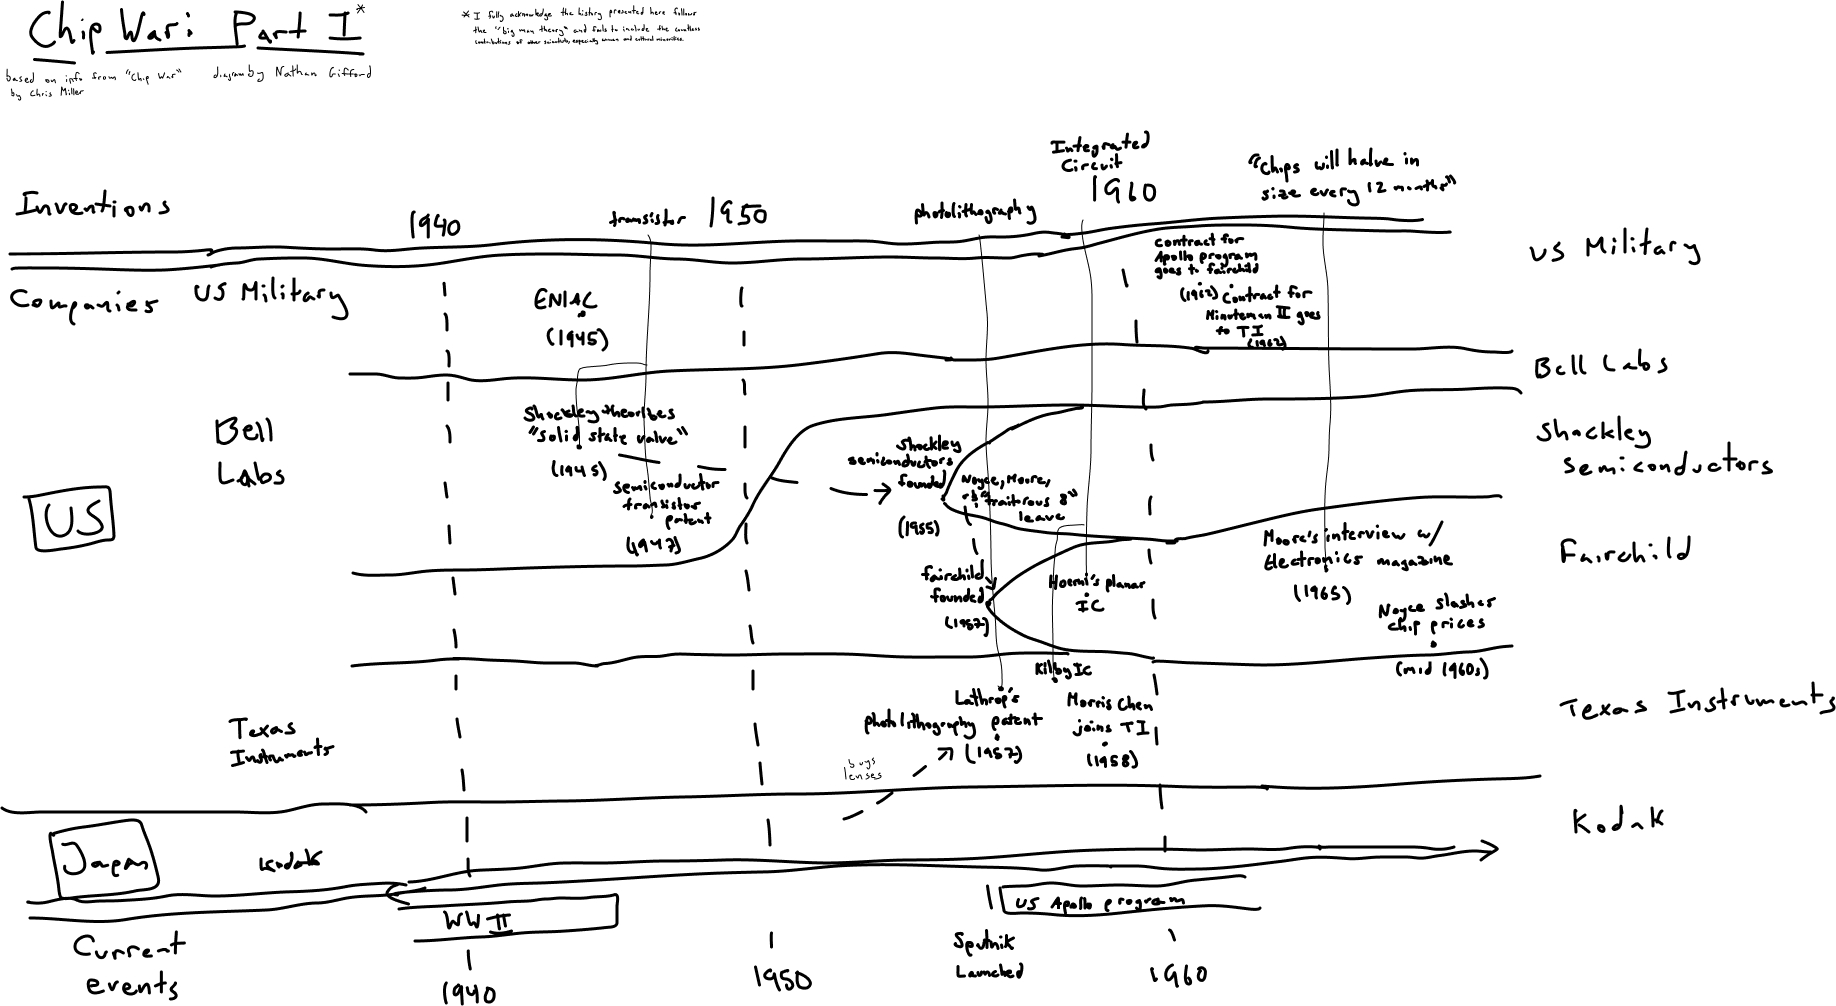 Chip War: Part I*
based on info from "Chip War"
by Chris Miller
diagram by Nathan Gifford
* I fully acknowledge the history presented here follows
the "big man theory" and fails to include the countless
contributions of other scientists, especially women and cultural minorities.
Inventions
1940
transistor
1950
photolithography
Integrated
Circuit
1960
"Chips will halve in
size every 12 months"
Companies
US Military
ENIAC
(1945)
contract for
Apollo program
goes to fairchild
(1962)
Contract for
Minuteman II goes
to TI
(1962)
US Military
Bell
Labs
Shockley theorizes
"solid state valve"
(1945)
semiconductor
transistor
patent
(1947)
Bell Labs
US
Shockley
semiconductors
founded
(1955)
Noyce, Moore,
"traitorous 8"
leave
Shockley
semiconductors
fairchild
founded
(1957)
Hoerni's planar
IC
Moore's interview w/
Electronics magazine
(1965)
Noyce slashes
chip prices
(mid 1960s)
Fairchild
Texas
Instruments
Lathrop's
photolithography patent
(1957)
Kilby IC
Morris Chen
joins TI
(1958)
Texas Instruments
buys
lenses
Japan
Kodak
Kodak
Current
events
WW II
Sputnik
Launched
US Apollo program
1940
1950
1960